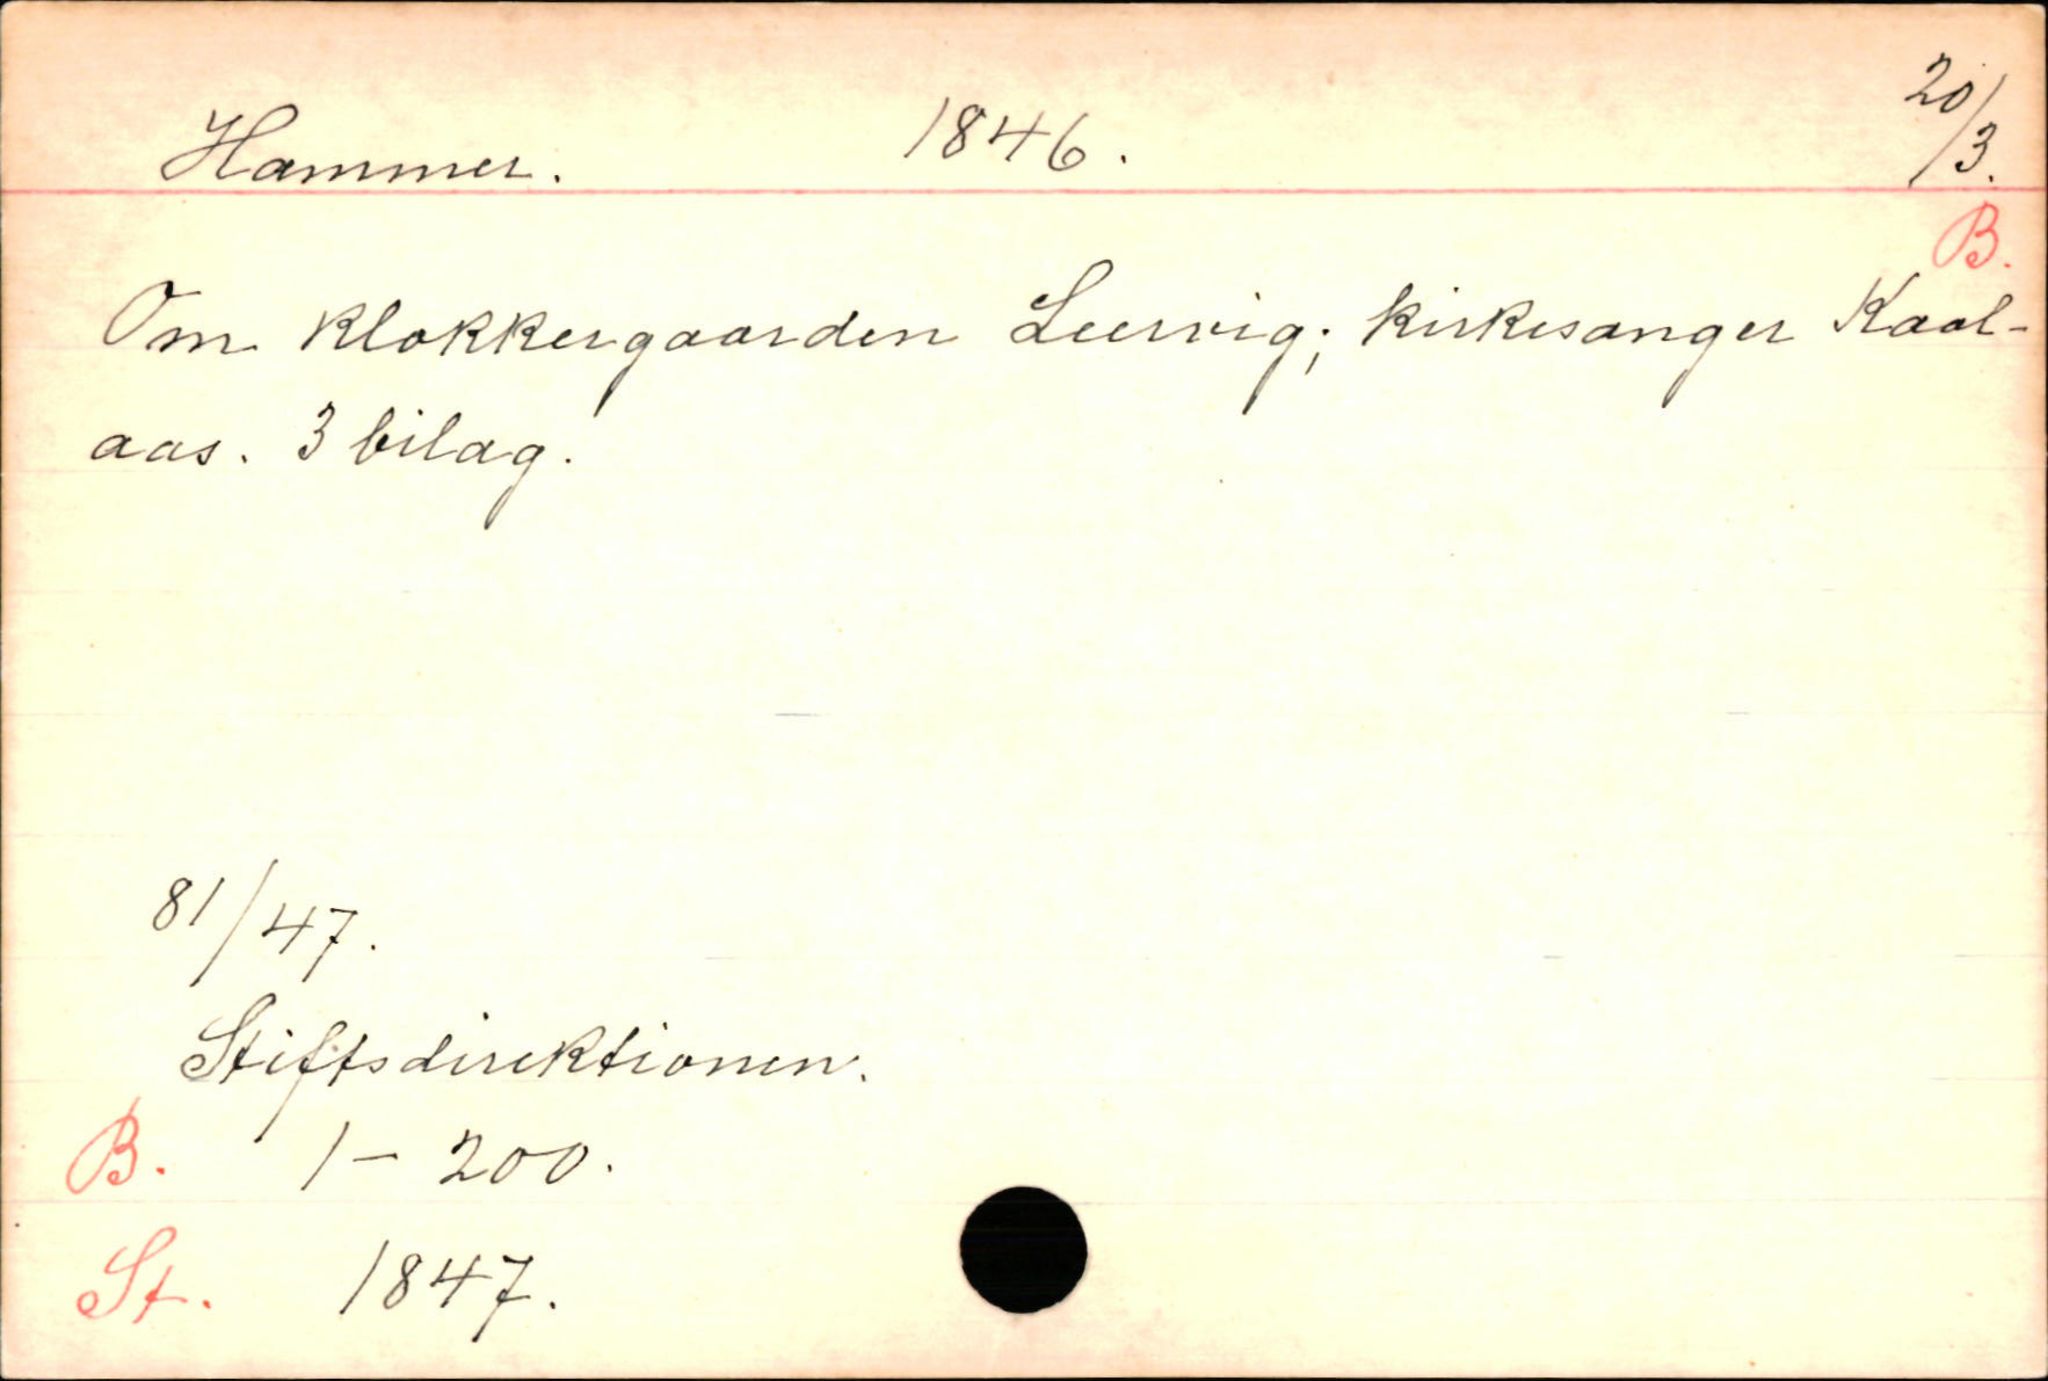 Hammer. 1846. 20/3.
B.
Om klokkergaarden Leervig; kirkesanger Kaal-
aas. 3 bilag.
81/47.
Stiftsdirektionen.
B. 1-200.
St. 1847.